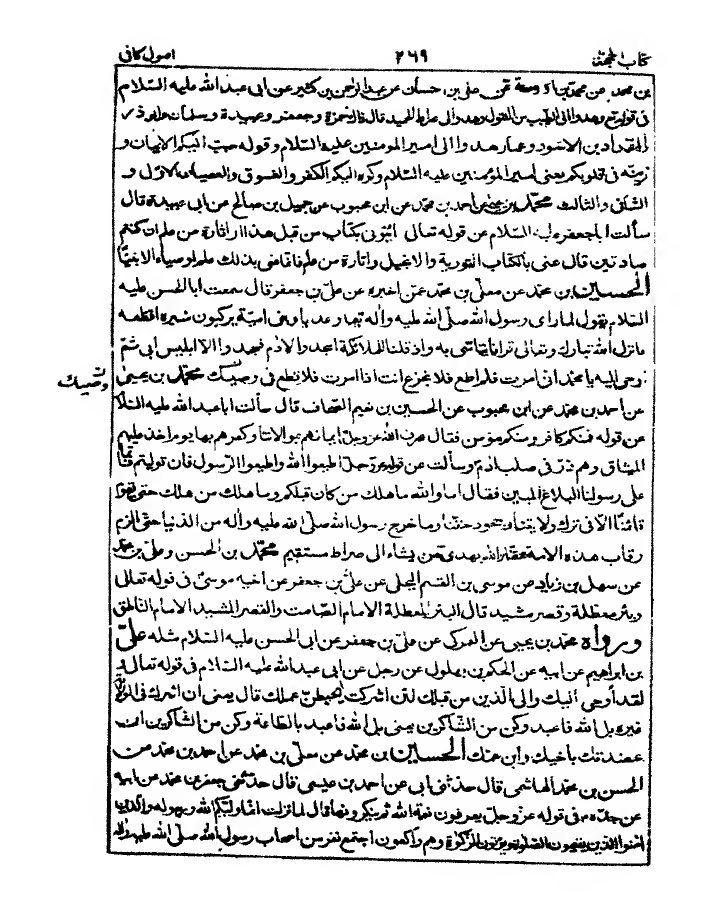 كتاب الحجة ٢٦٩ اصول كافى
بن محمد عن محمد بن اورمة عن على بن حسان عن عبد الرحمن بن كثير عن ابى عبد الله عليه السلام
فى قوله تع وهدوا الى الطيب من القول وهدوا الى صراط الحميد قال ذاك حمزة وجعفر وعبيدة وسلمان وابوذر
المقداد بن الاسود وعمار هدوا الى امير المؤمنين عليه السلام وقوله حبب اليكم الايمان و
زينه فى قلوبكم يعنى امير المؤمنين عليه السلام وكره اليكم الكفر والفسوق والعصيان الاول و
الثانى والثالث محمد بن يحيى عن احمد بن محمد عن ابن محبوب عن جميل بن صالح عن ابى عبيدة قال
سألت ابا جعفر عليه السلام عن قوله تعالى ائتونى بكتاب من قبل هذا او اثارة من علم ان كنتم
صادقين قال عنى بالكتاب التورية والانجيل واثارة من علم فانما عنى بذلك علم اوصياء الانبياء
الحسين بن محمد عن معلى بن محمد عمن اخبره عن على بن جعفر قال سمعت ابا الحسن عليه
السلام يقول لما راى رسول الله صلى الله عليه واله تيما وعديا وبنى امية يركبون منبره افظعه
فانزل الله تبارك وتعالى قرانا يتاسى به واذ قلنا للملائكة اسجدوا لادم فسجدوا الا ابليس ابى ثم
اوحى اليه يا محمد انى امرت فلم اطع فلا تجزع انت اذا امرت فلم تطع فى وصيك محمد بن يحيى
وصيتك
عن احمد بن محمد عن ابن محبوب عن الحسين بن نعيم الصحاف قال سألت ابا عبد الله عليه السلام
عن قوله فمنكم كافر ومنكم مؤمن فقال عرف الله عز وجل ايمانهم بموالاتنا وكفرهم بها يوم اخذ عليهم
الميثاق وهم ذر فى صلب ادم وسألته عن قوله عز وجل اطيعوا الله واطيعوا الرسول فان توليتم فانما
على رسولنا البلاغ المبين فقال اما والله ما هلك من كان قبلكم وما هلك من هلك حتى يقوم
قائمنا الا فى ترك ولايتنا وجحود حقنا وما خرج رسول الله صلى الله عليه واله من الدنيا حتى الزم
رقاب هذه الامة حقنا والله يهدى من يشاء الى صراط مستقيم محمد بن الحسن وعلى بن محمد
عن سهل بن زياد عن موسى بن القسم البجلى عن على بن جعفر عن اخيه موسى فى قوله تعالى
وبئر معطلة وقصر مشيد قال البئر المعطلة الامام الصامت والقصر المشيد الامام الناطق
ورواه محمد بن يحيى عن العمركى عن على بن جعفر عن ابى الحسن عليه السلام مثله على
بن ابراهيم عن ابيه عن الحكم بن بهلول عن رجل عن ابى عبد الله عليه السلام فى قوله تعالى و
لقد اوحى اليك والى الذين من قبلك لئن اشركت ليحبطن عملك قال يعنى ان اشركت فى الولاية
غيره بل الله فاعبد وكن من الشاكرين يعنى بل الله فاعبد بالطاعة وكن من الشاكرين ان
عضدتك باخيك وابن عمك الحسين بن محمد عن معلى بن محمد عن احمد بن محمد عن
الحسن بن محمد الهاشمى قال حدثنى ابى عن احمد بن عيسى قال حدثنى جعفر بن محمد عن ابيه
عن جده فى قوله عز وجل يعرفون نعمة الله ثم ينكرونها قال لما نزلت انما وليكم الله ورسوله والذين
امنوا الذين يقيمون الصلوة ويؤتون الزكوة وهم راكعون اجتمع نفر من اصحاب رسول الله صلى الله عليه واله